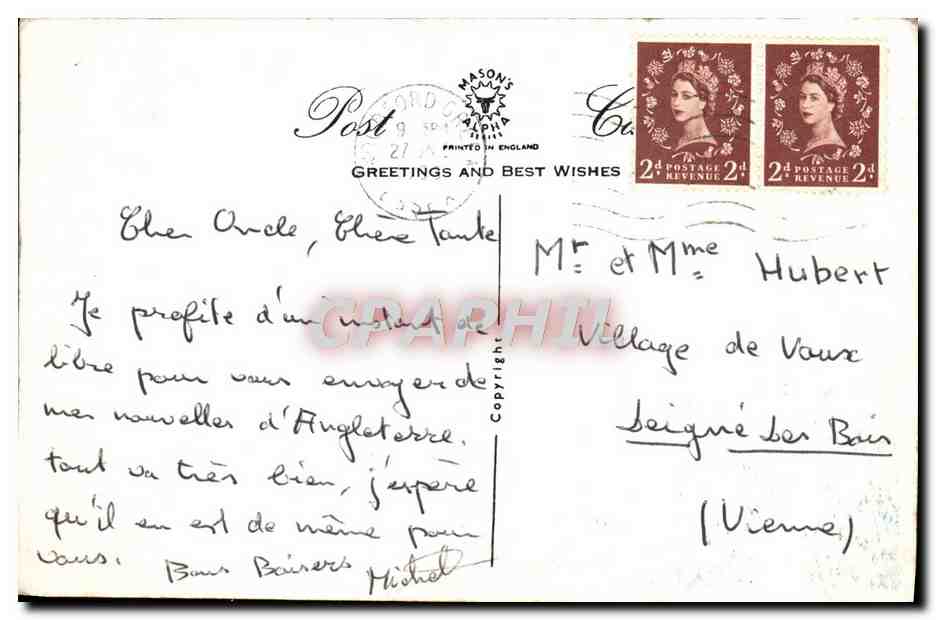 Post Card
MASON'S
ALPHA
SERIES
PRINTED IN ENGLAND
GREETINGS AND BEST WISHES
2d POSTAGE REVENUE 2d
2d POSTAGE REVENUE 2d
Cher Oncle, Chère Tante
Je profite d'un instant de
libre pour vous envoyer de
mes nouvelles d'Angleterre.
tout va très bien, j'espère
qu'il en est de même pour
vous. Bons Baisers
Michel
Copyright
Mr et Mme Hubert
Village de Vaux
Leigné les Bois
(Vienne)
CPAPHIL